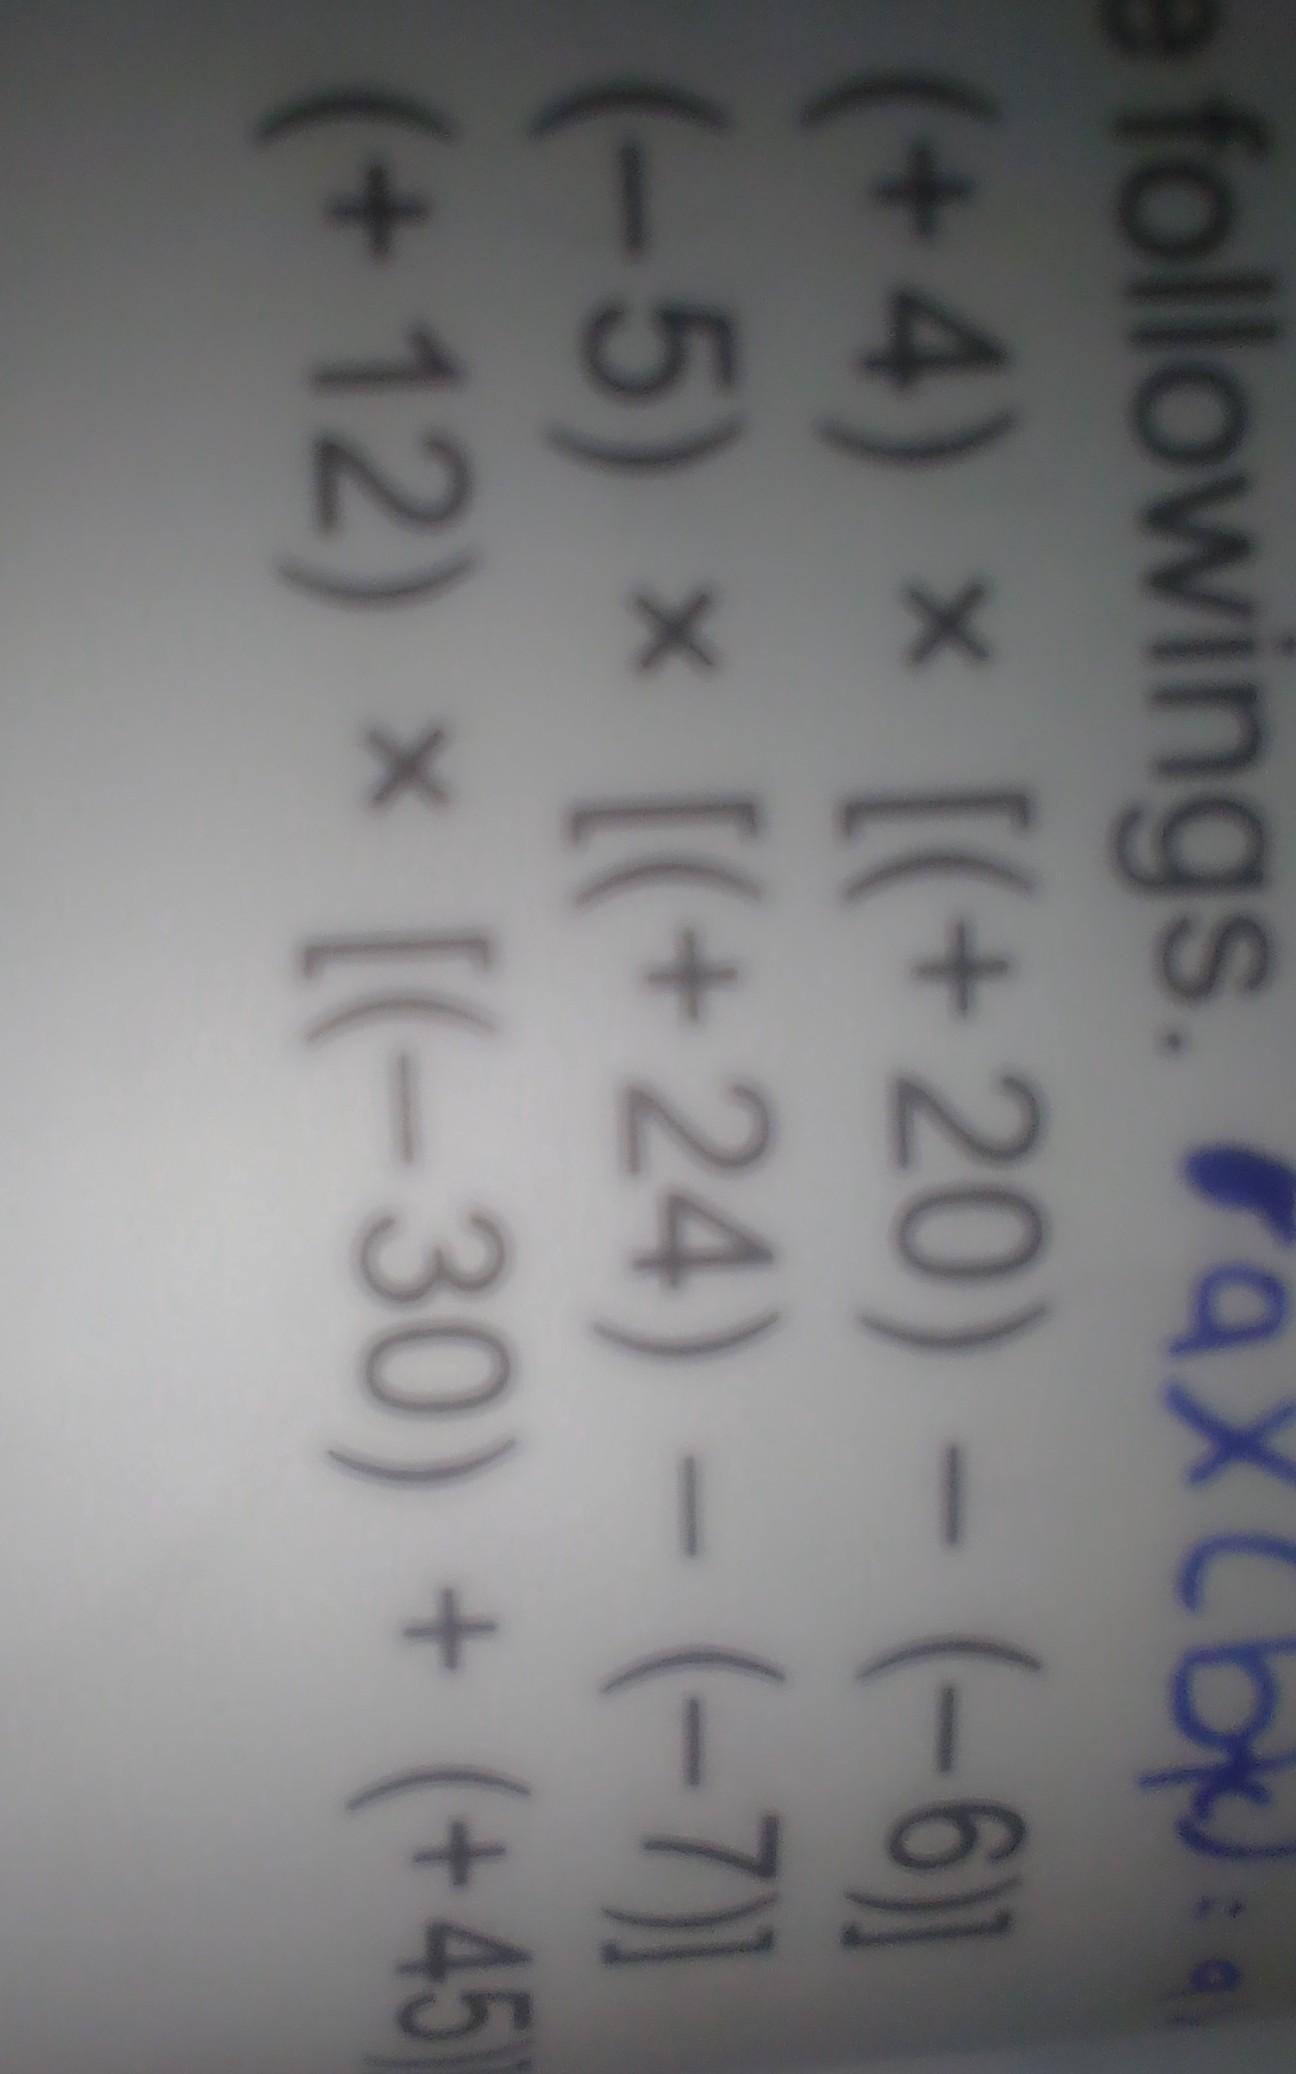 followings. ax(b
(+ 4) × [(+ 20) − (− 6)]
(− 5) × [(+ 24) − (− 7)]
(+ 12) × [(− 30) + (+ 45)